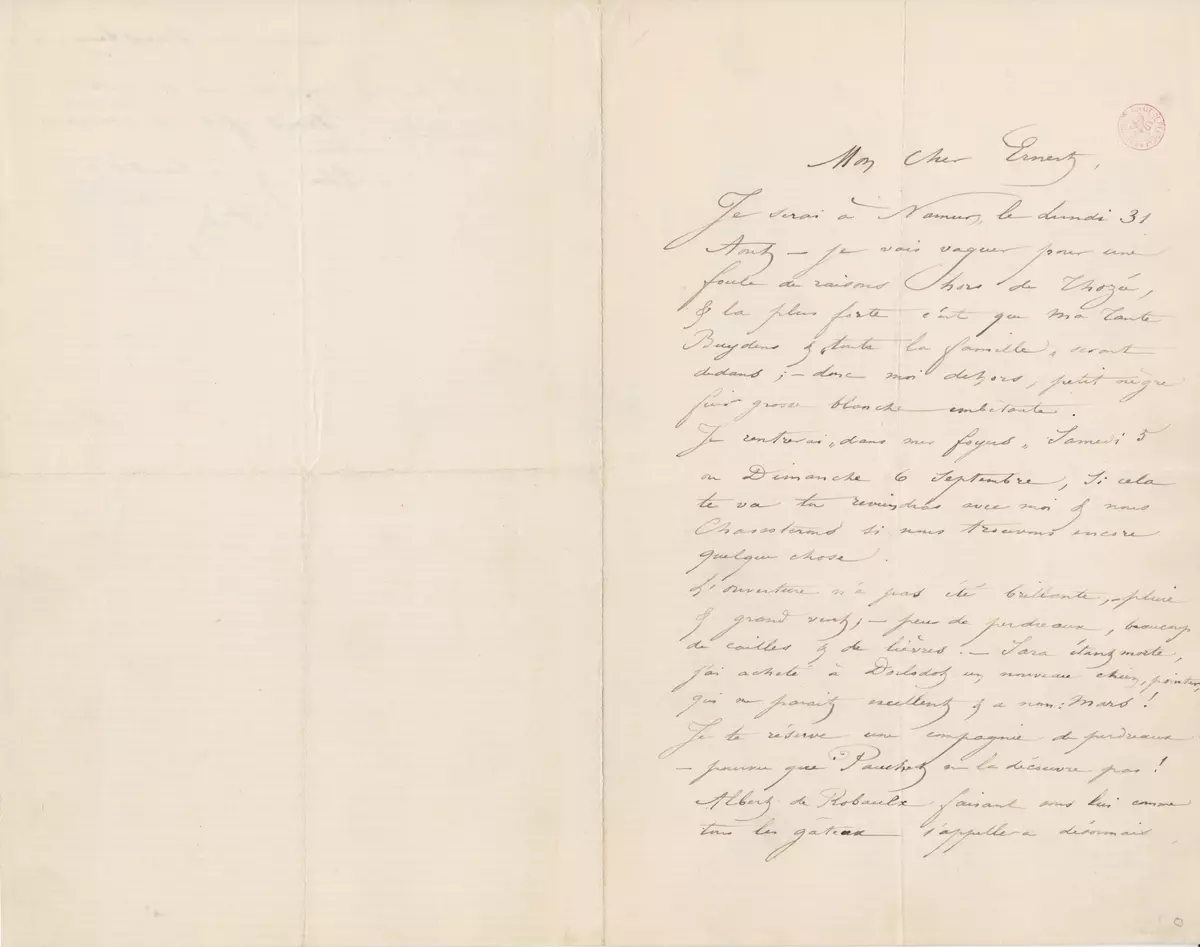 Mon cher Ernest,
Je serai à Namur, le Lundi 31
Août – je vais vaquer pour une
foule de raisons hors de Thozée,
& la plus forte c'est que ma Tante
Buydens & toute la famille „ seront
dedans ; – donc moi dehors, petit nègre
fuir grosse blanche embêtante.
Je rentrerai „ dans mes foyers „ Samedi 5
ou Dimanche 6 Septembre, Si cela
te va tu reviendras avec moi & nous
Chasserons si nous trouvons encore
quelque chose.
L'ouverture n'a pas été brillante, – pluie
& grand vent ; – peu de perdreaux, beaucoup
de cailles & de lièvres. – Sara étant morte,
j'ai acheté à un nouveau chien, pointer,
qui me parait excellent & a nom : Mars !
Je te réserve une compagnie de perdreaux
– pourvu que Pauchet ne la découvre pas !
Albert de Robaulx faisant sous lui comme
tous les gâteux s'appellera désormais